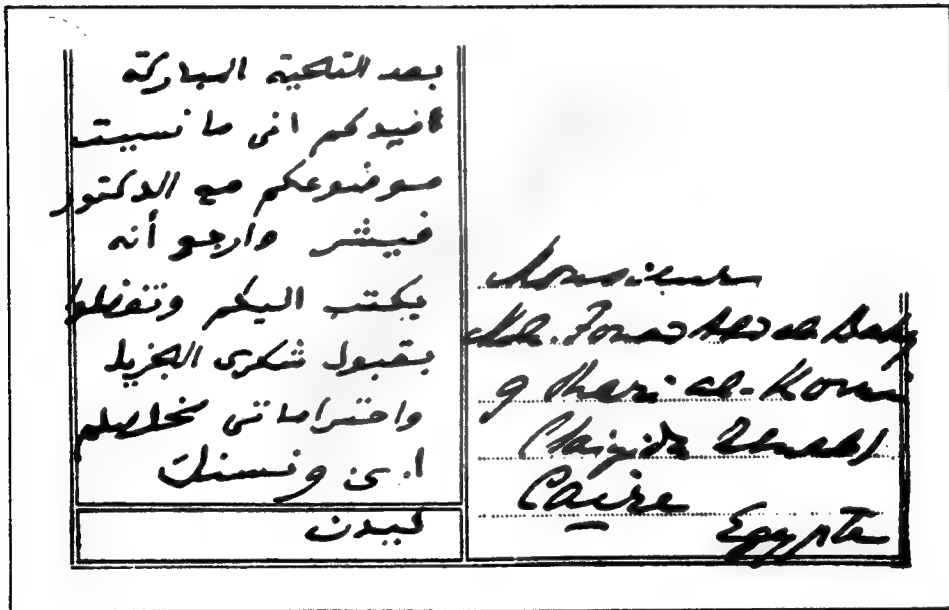 بعد التحية المباركة
افيدكم انى ما نسيت
موضوعكم مع الدكتور
فيشر وارجو أنه
يكتب اليكم وتفضلوا
بقبول شكرى الجزيل
واحتراماتى مخلصكم
ا.ى ونسنك
ليدن
Monsieur
Md. Fouad Abd al-Baky
9 Shari al-Komi
Sayida Zeinab
Caire
Egypte